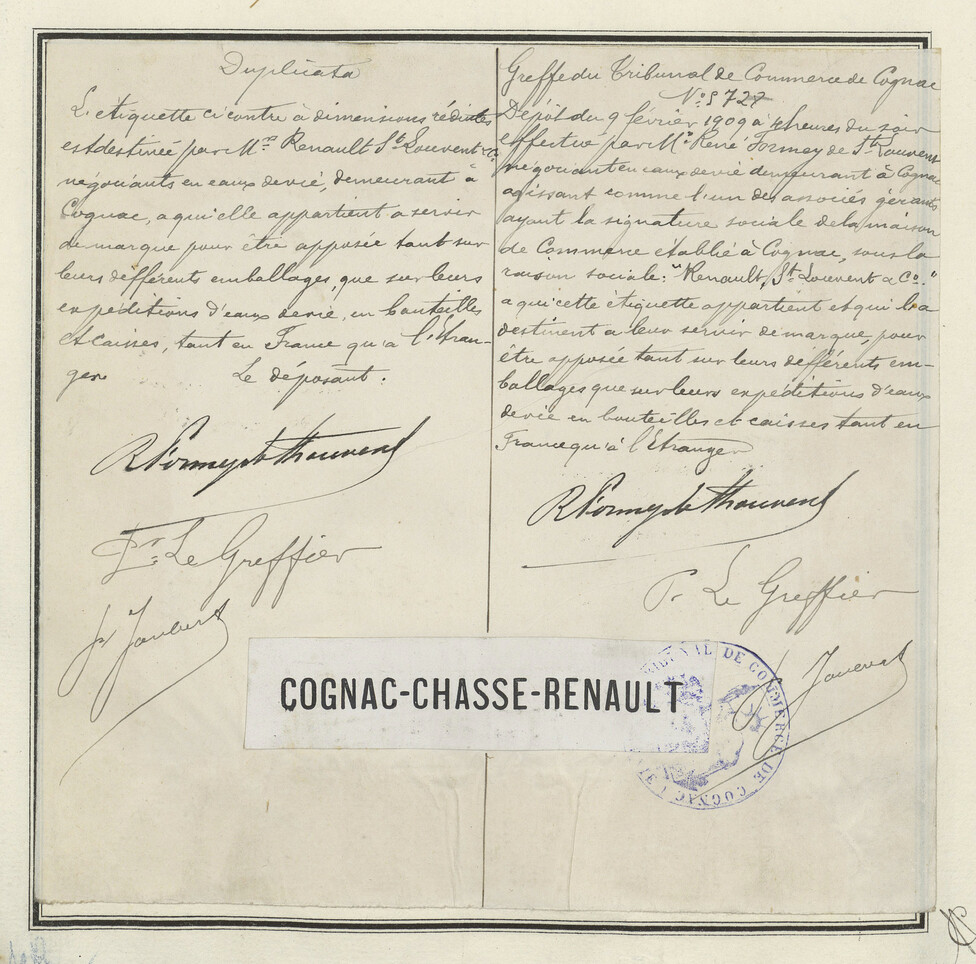 Duplicata
L'etiquette ci contre à dimensions réduites
est destinée par Mrs Renault St Louvent & Co
négociants en eaux de vie, demeurant à
Cognac, a qui elle appartient a servir
de marque pour être apposée tant sur
leurs différents emballages, que sur leurs
expéditions d'eaux de vie, en bouteilles
et caisses, tant en France qu'à l'Etran-
ger. Le déposant.
R Formey de St Louvent
Pr Le Greffier
Greffe du Tribunal de Commerce de Cognac
No 5727
Dépôt du 9 février 1909 à 4 heures du soir
effectué par Mr René Formey de St Louvent
négociant en eaux de vie demeurant à Cognac
agissant comme l'un des associés gérants
ayant la signature sociale de la maison
de Commerce établie à Cognac, sous la
raison sociale: "Renault, St Louvent & Co."
a qui cette étiquette appartient et qui la
destinent a leur servir de marque, pour
être apposée tant sur leurs différents em-
ballages que sur leurs expéditions d'eaux
de vie en bouteilles et caisses tant en
France qu'à l'Etranger
R Formey de St Louvent
Pr Le Greffier
COGNAC-CHASSE-RENAULT
TRIBUNAL DE COMMERCE DE COGNAC